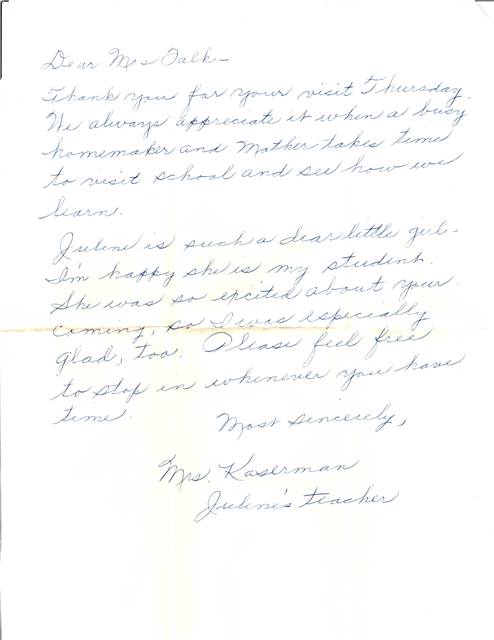 Dear Mrs Falk -
Thank you for your visit Thursday.
We always appreciate it when a busy
homemaker and Mother takes time
to visit school and see how we
learn.
Julene is such a dear little girl -
I'm happy she is my student.
She was so excited about your
coming, so I was especially
glad, too. Please feel free
to stop in whenever you have
time.
Most sincerely,
Mrs. Kaserman
Julene's teacher